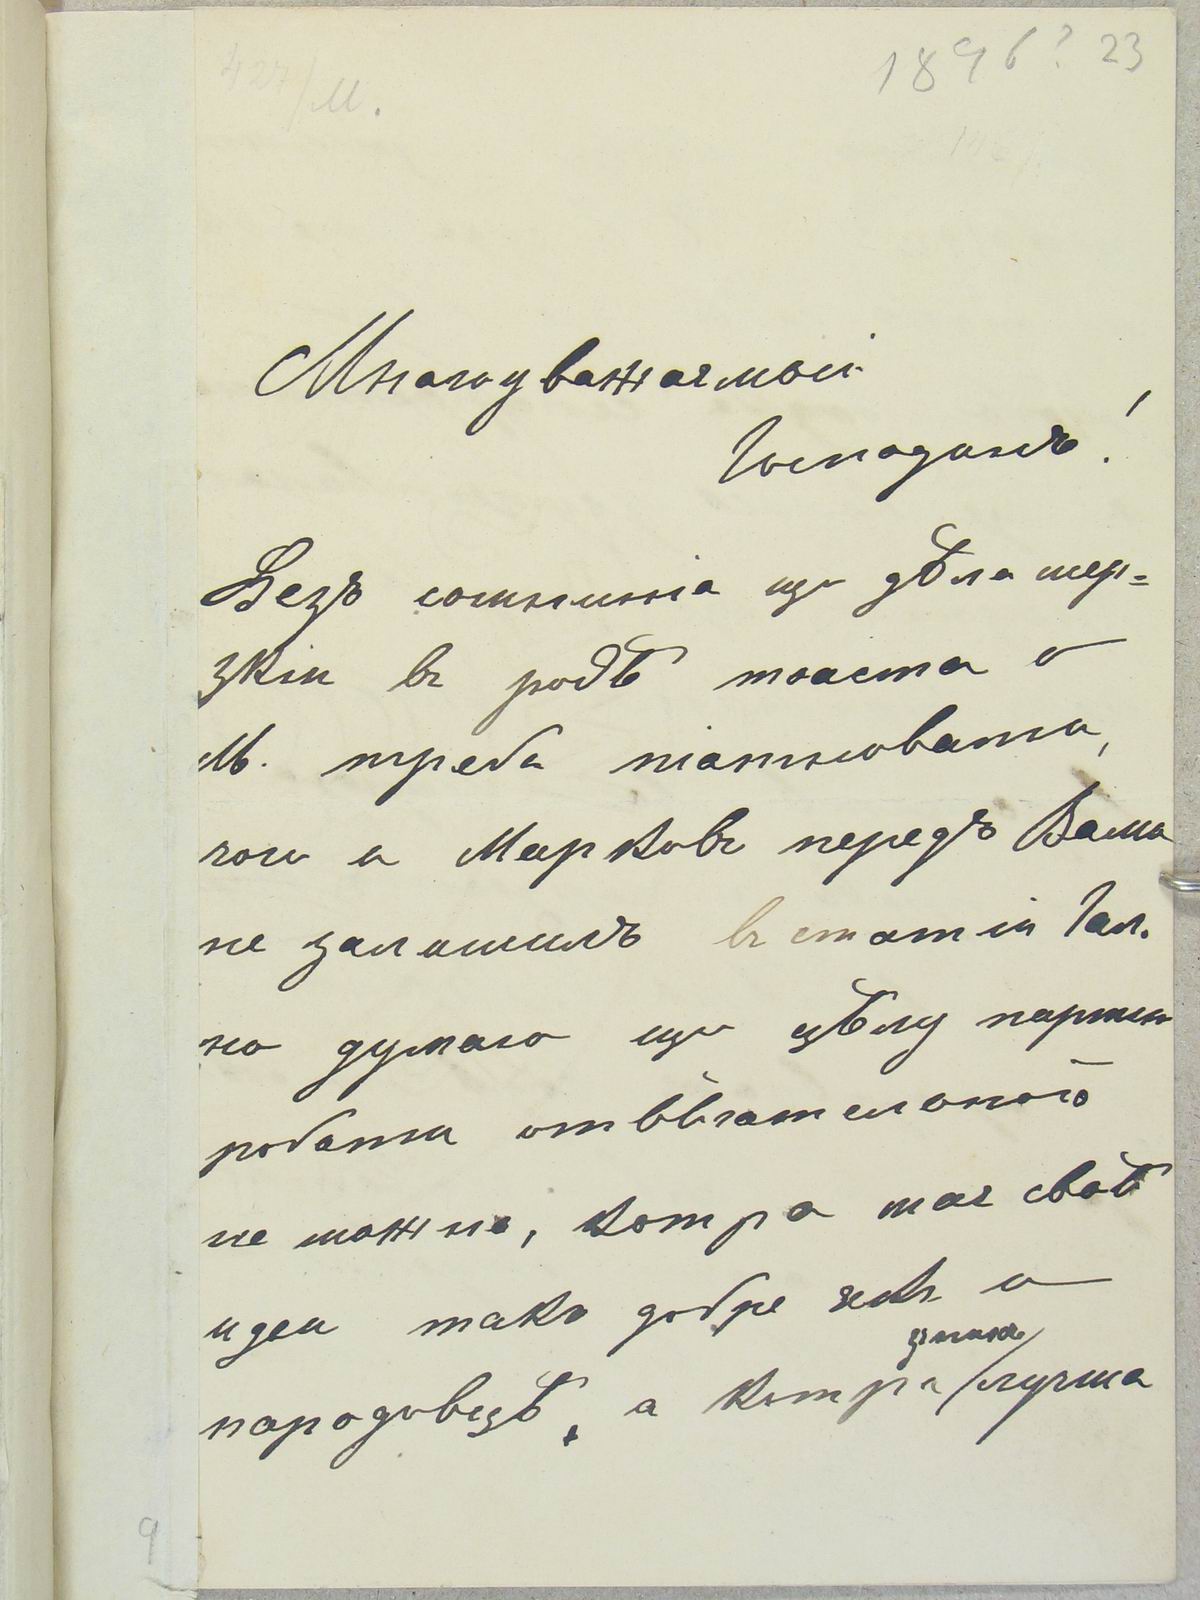 427/М.
1896? 23
Многоуважаемый
Господинъ!
Безъ сомнѣнія що дѣла мер-
зкіи въ родѣ тоаста о
М. треба піатновати,
чого и Марковъ передъ Вами
не залишилъ въ статіи Гал.
но думаю що цѣлу партию
робити отвѣчательною
не можно, котра мае свои
идеи такъ добре якъ и
народовцѣ, а котра лучша
9